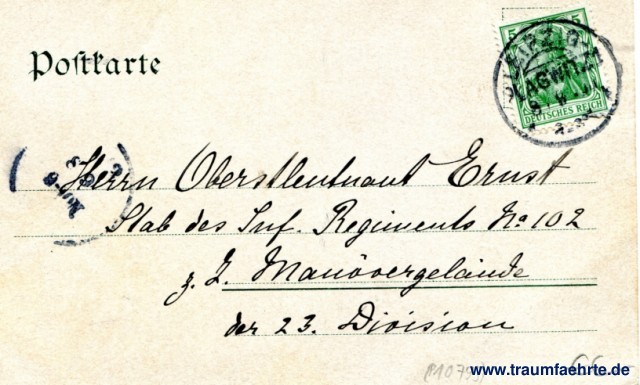 Postkarte
5 5
DEUTSCHES REICH
LEIPZIG
PLAGWITZ
Herrn Oberstleutnant Ernst
Stab des Inf. Regiments No 102
z. Z. Manövergelände
der 23. Division
www.traumfaehrte.de